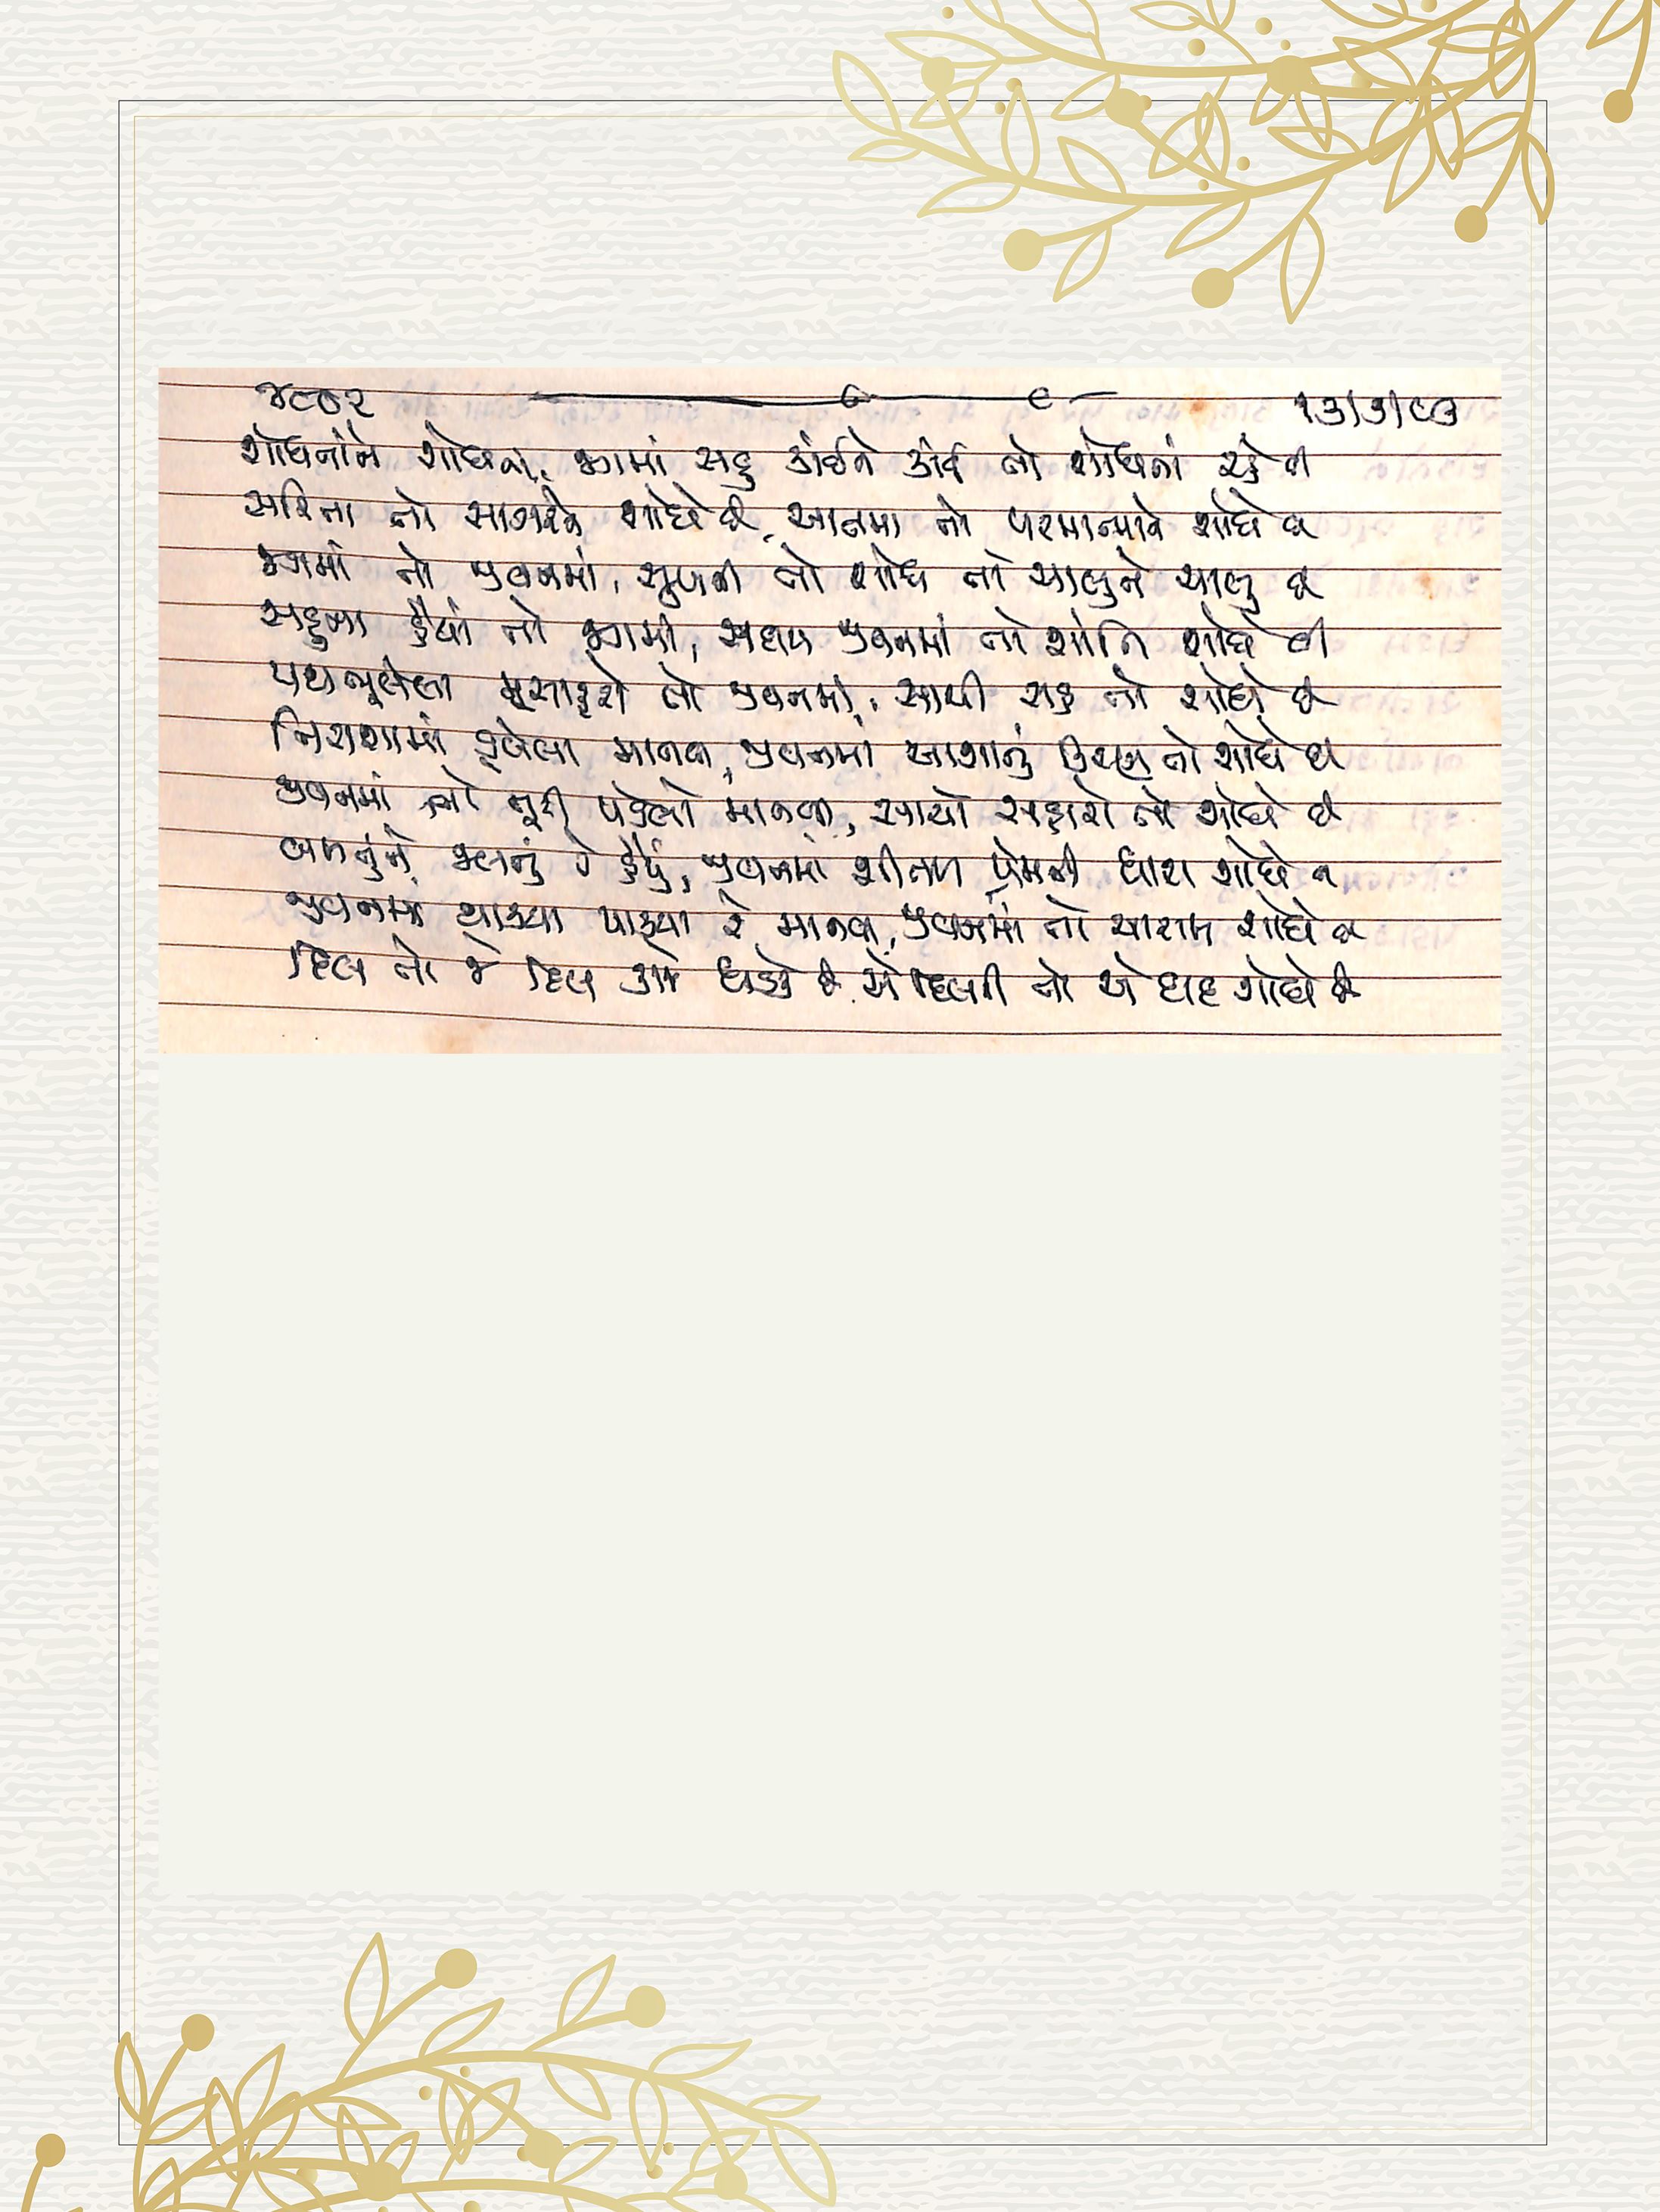 ૪૬૦૨ ૧૩/૩/૯૩
શોધતાંને શોધતા, જગમાં સહુ કોઈને કોઈ તો શોધતાં રહે છે
સરિતા તો સાગરને શોધે છે, આતમા તો પરમાત્માને શોધે છે
જગમાં તો જીવનમાં, સુખની તો શોધ તો ચાલુને ચાલુ છે
સહુના હૈયાં તો જગમાં, સદાય જીવનમાં તો શાંતિ શોધે છે
પથ ભૂલેલા મુસાફરો તો જીવનમાં, સાચી રાહ તો શોધે છે
નિરાશામાં ડૂબેલા માનવ, જીવનમાં આશાનું કિરણ તો શોધે છે
જીવનમાં તો તૂટી પડેલો માનવ, સાચો સહારો તો શોધે છે
બળતુંને જલતું રે હૈયું, જીવનમાં શીતળ પ્રેમની ધારા શોધે છે
જીવનમાં થાક્યા પાક્યા રે માનવ, જીવનમાં તો આરામ શોધે છે
દિલ તો જે દિલ કાજે ધડકે છે, એ દિલની તો એ યાદ શોધે છે